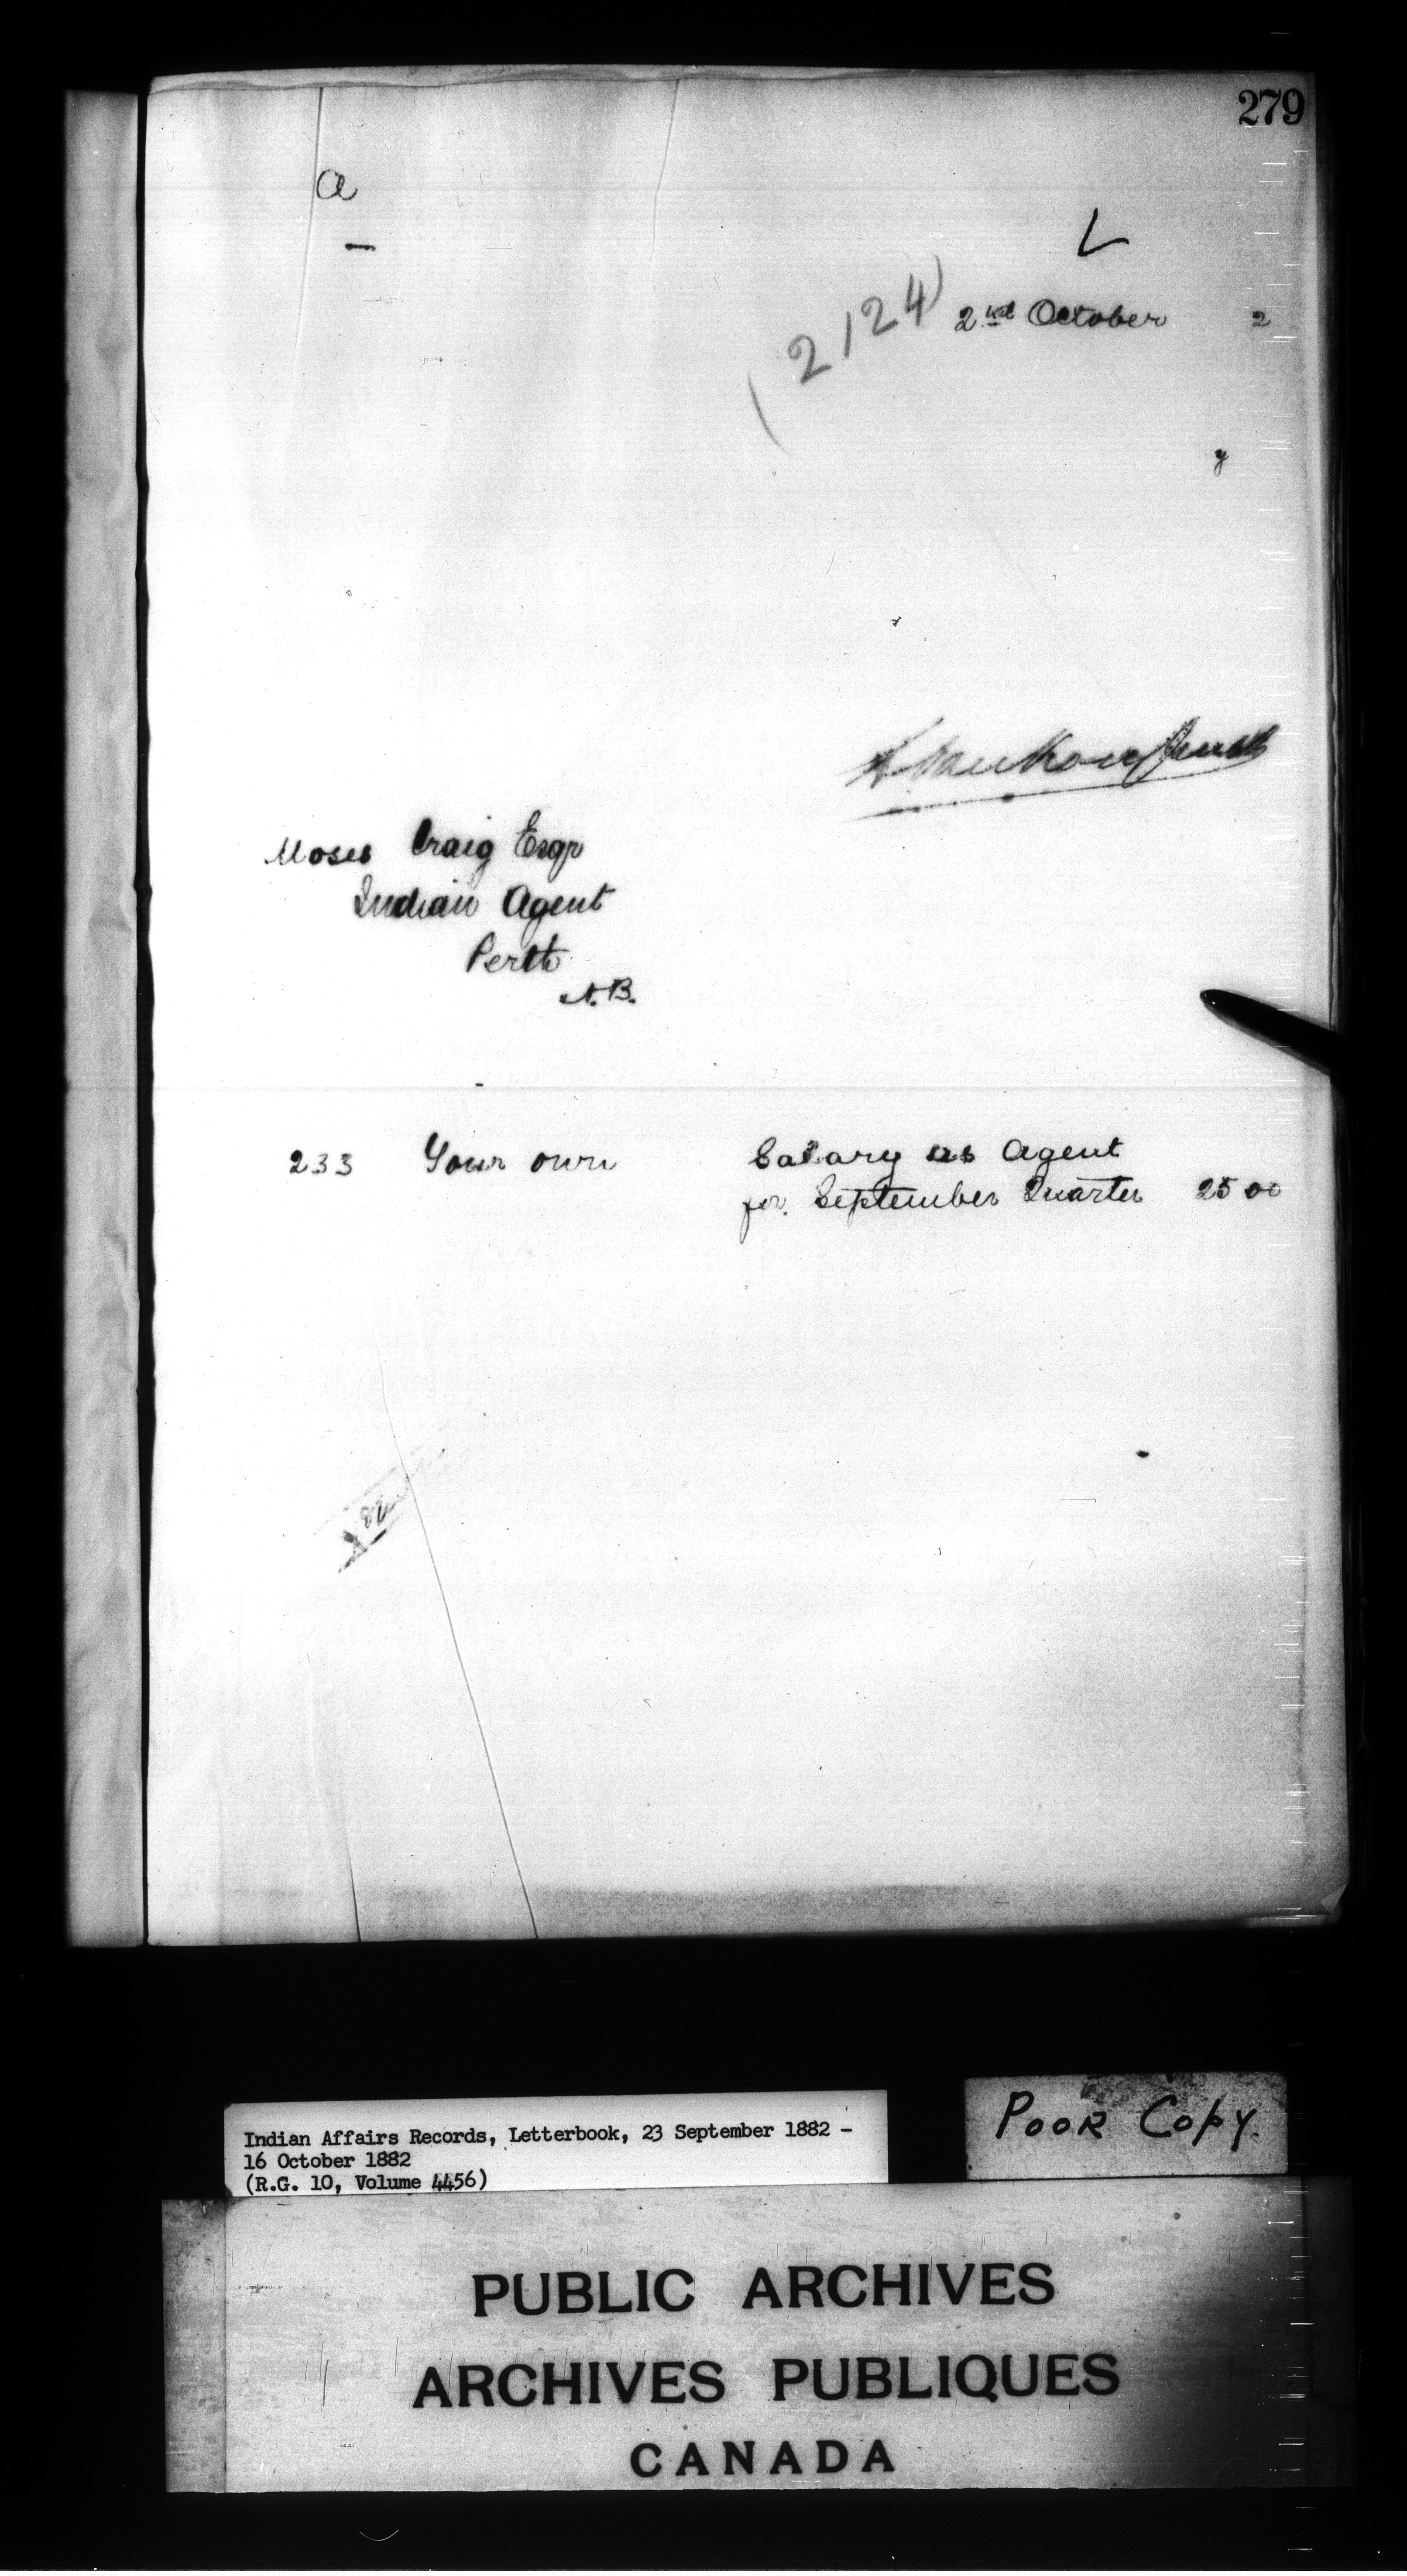 279
a
L
(2124)
2nd October 2
y
L. VanKoughnet
Moses Craig Esqr
Indian Agent
Perth
N.B.
233 Your own Salary as Agent
for September Quarter 25 00
Poor Copy.
Indian Affairs Records, Letterbook, 23 September 1882 -
16 October 1882
(R.G. 10, Volume 4456)
PUBLIC ARCHIVES
ARCHIVES PUBLIQUES
CANADA